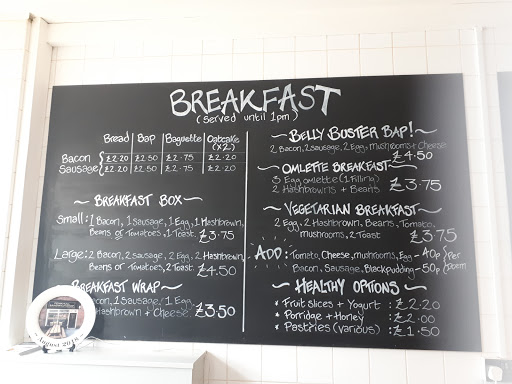 BREAKFAST
(Served until 1pm)
Bread Bap Baguette Oatcake (x2)
Bacon £2.20 £2.50 £2.75 £2.20
Sausage £2.20 £2.50 £2.75 £2.20
~ BREAKFAST BOX ~
Small: 1 Bacon, 1 Sausage, 1 Egg, 1 Hashbrown,
Beans or Tomatoes, 1 Toast £3.75
Large: 2 Bacon, 2 sausage, 2 Egg, 2 Hashbrown
Beans or Tomatoes, 2 Toast £4.50
BREAKFAST WRAP ~
Bacon, 1 Sausage, 1 Egg
Hashbrown + Cheese £3.50
August 2018
~ BELLY BUSTER BAP! ~
2 Bacon, 2 sausage, 2 Egg, mushrooms + Cheese
£4.50
~ OMLETTE BREAKFAST ~
3 Egg omlette (1 Filling)
2 Hashbrowns + Beans £3.75
~ VEGETARIAN BREAKFAST ~
2 Egg, 2 Hashbrown, Beans, Tomato,
mushrooms, 2 Toast £3.75
ADD: Tomato, Cheese, mushrooms, Egg - 40p } Per
Bacon, Sausage, Blackpudding - 50p } Item
~ HEALTHY OPTIONS ~
* Fruit slices + Yogurt : £2.20
* Porridge + Honey : £2.00
* Pastries (various) : £1.50